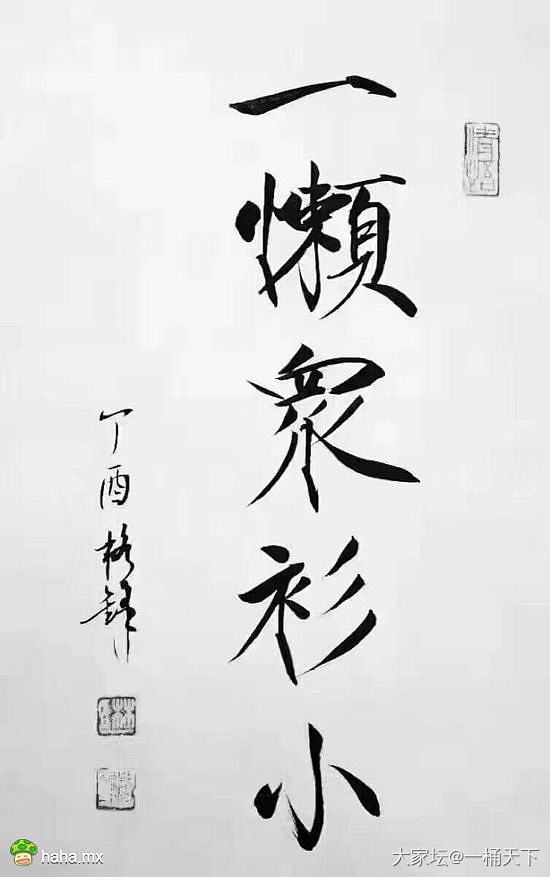 一懶眾衫小
丁酉
haha.mx
大家坛@一桶天下